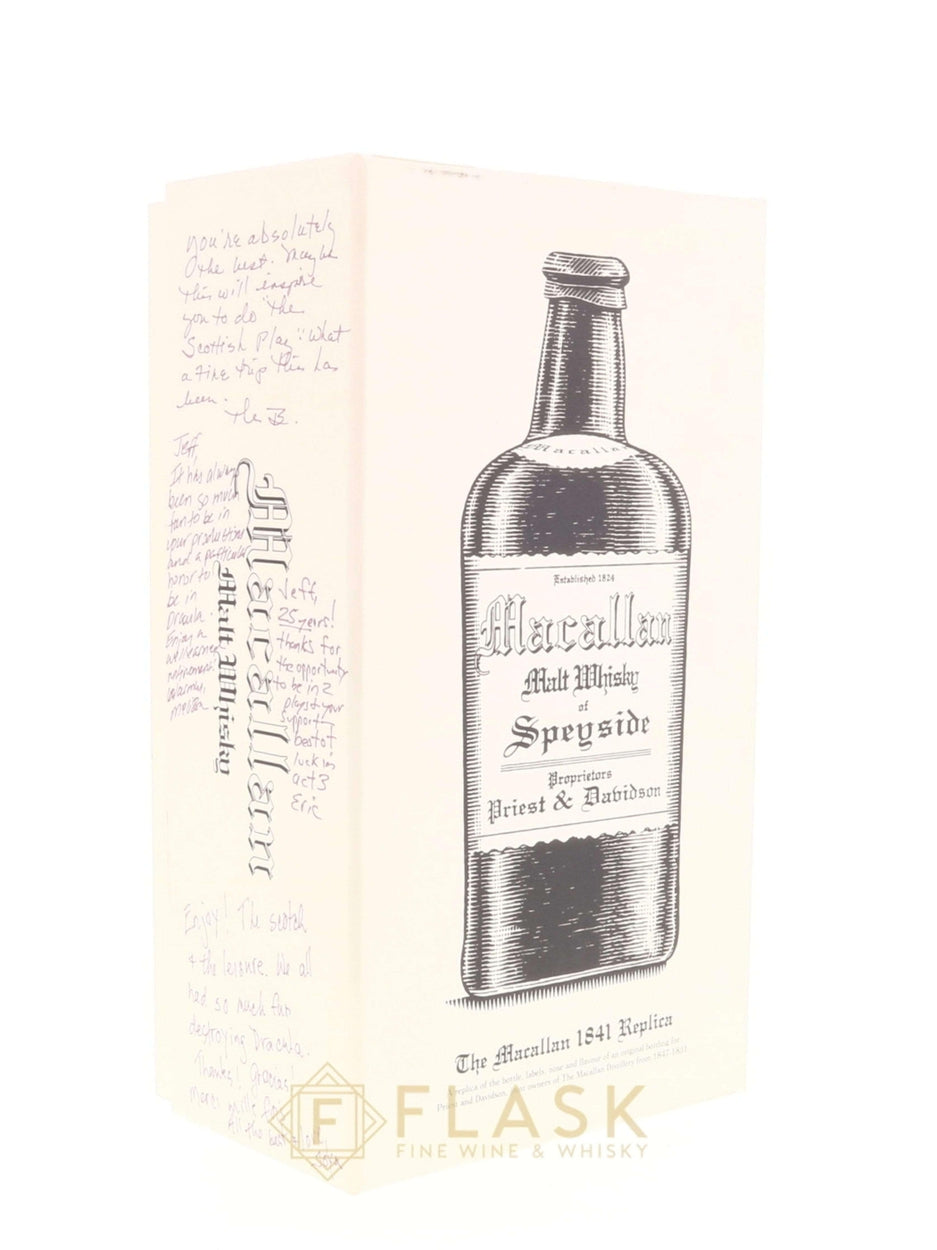 you're absolutely
the best. Maybe
this will inspire
you to do "the
Scottish Play". What
a fine trip this has
been.
The B.
Jeff,
It has always
been so much
fun to be in
your productions
and a particular
honor to
be in
Dracula.
Enjoy a
well earned
retirement!
Macallan
Malt Whisky
Jeff,
25 years!
thanks for
the opportunity
to be in 2
plays & your
support
best of
luck in
act 3
Eric
Enjoy! The scotch
& the leisure. We all
had so much fun
destroying Dracula.
Thanks! Gracias!
All the best
Macallan
Established 1824
Macallan
Malt Whisky
of
Speyside
Proprietors
Priest & Davidson
The Macallan 1841 Replica
A replica of the bottle, labels, nose and flavour of an original bottling for
Priest and Davidson, owners of The Macallan Distillery from 1847-1861
F FLASK
FINE WINE & WHISKY